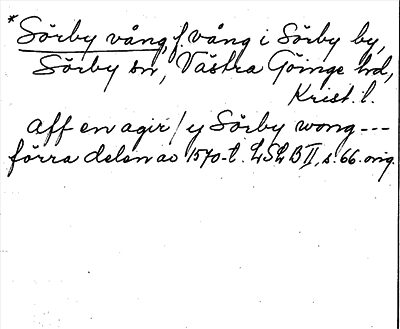 *Sörby vång, f. vång i Sörby by,
Sörby sn, Västra Göinge hd,
Krist. l.
Aff en agir / y Sörby wong ---
förra delen av 1570-t. LSLB II, s. 66. orig.